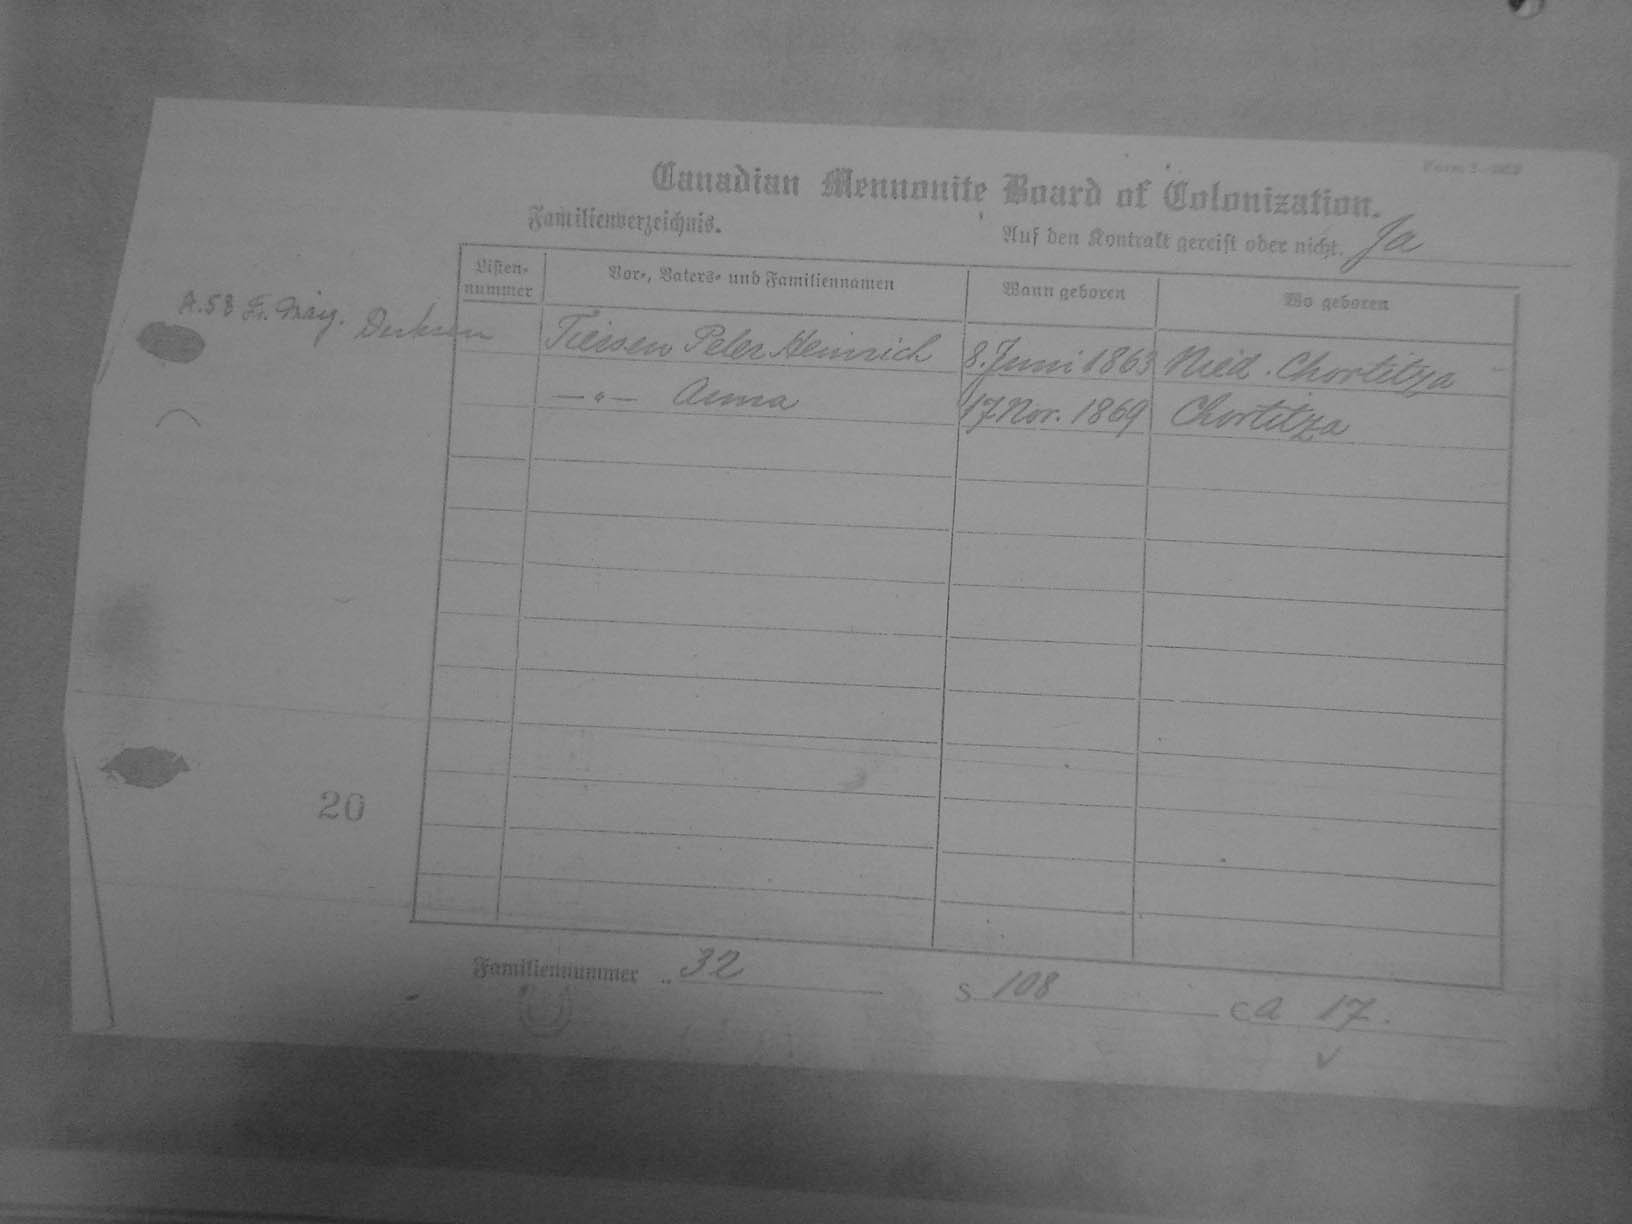 Canadian Mennonite Board of Colonization.
Familienverzeichnis.
Auf den Kontrakt gereist oder nicht. Ja
Listen-nummer Vor-, Vaters- und Familiennamen Wann geboren Wo geboren
A.58
Tiessen Peter Heinrich 8. Juni 1863 Nied. Chortitza
—"— Anna 17 Nov. 1869 Chortitza
20
Familiennummer 32 S 108 CA 17.